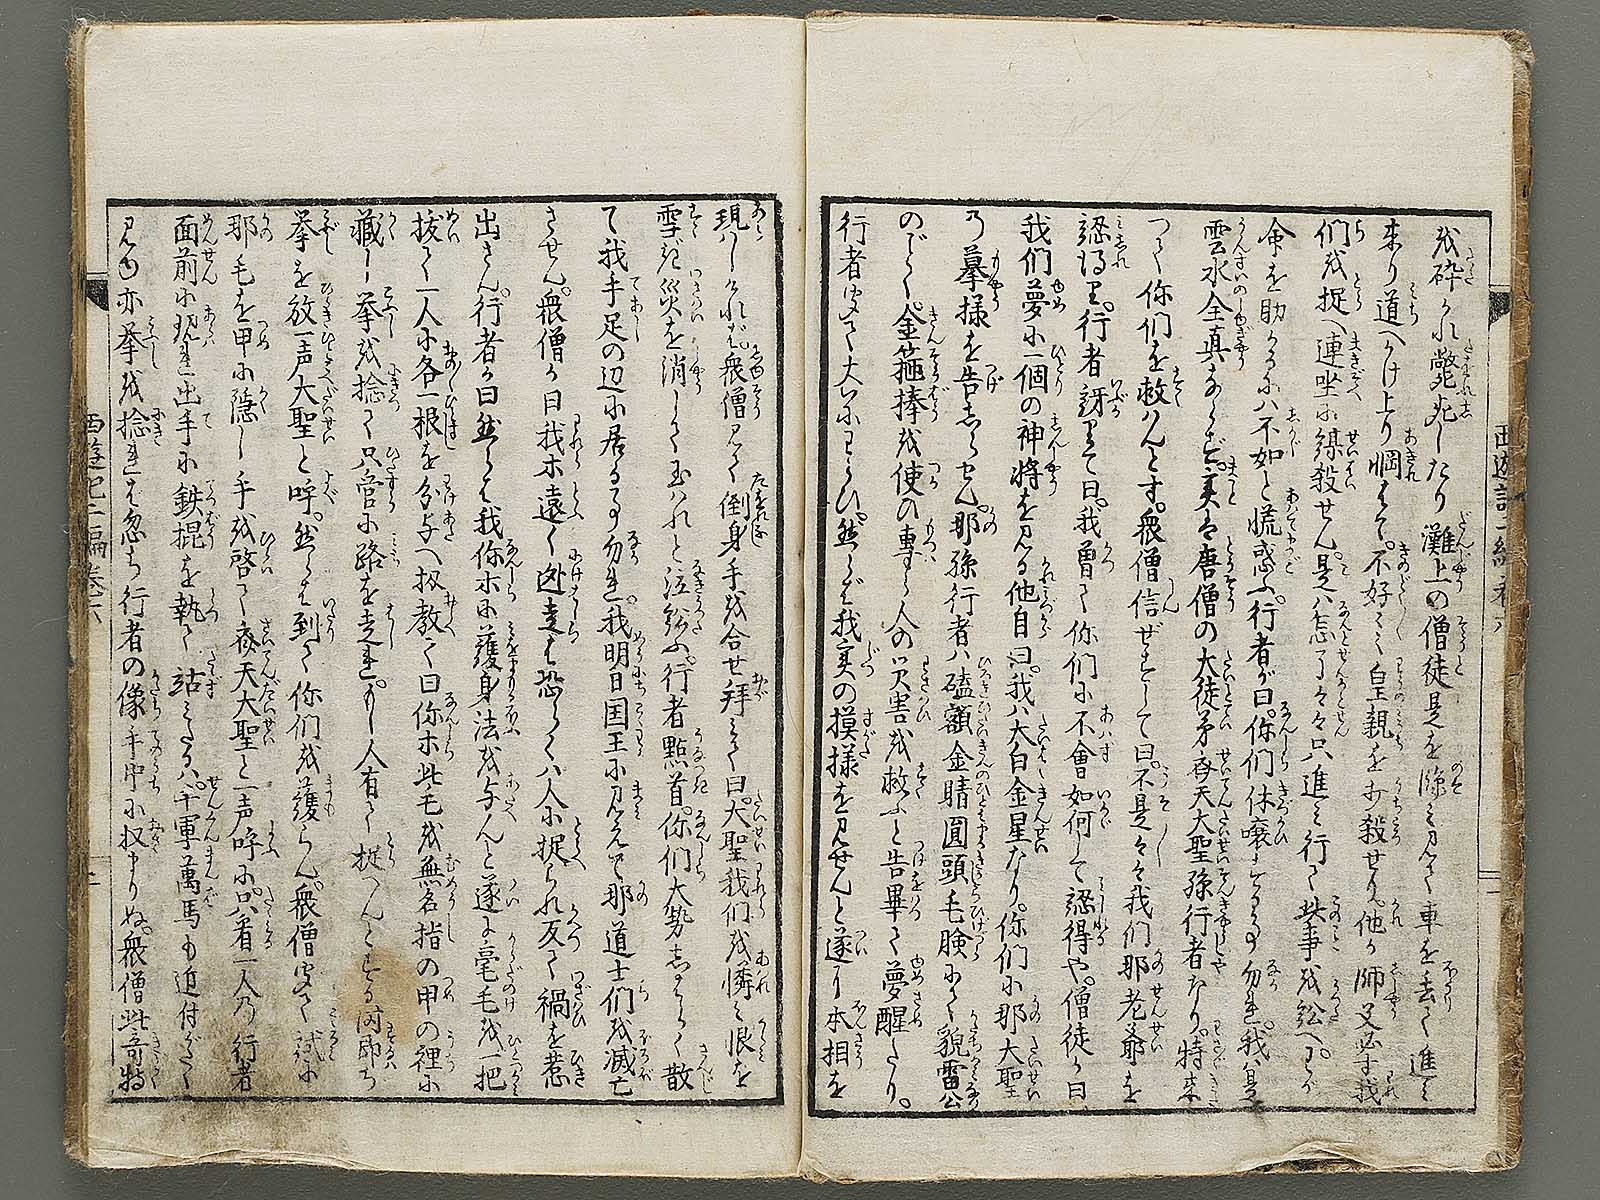 砕かれ斃死したり灘上の僧徒是を隙ミ見て車を去て進ミ
来り道へかけ上り惘はて不好ミミ皇親を打殺せり他が師父必ず我
们を捉へ連坐に縊殺せん是ハ怎了々々只進ミ行て此事を訟へわが
命を助かるにハ不如と慌惑ふ行者が曰你们休嚷すること勿れ我ハ是
雲水全真ならず実は唐僧の大徒弟斉天大聖孫行者なり特来
つて你们を救ハんとす衆僧信ぜずして曰不是々々我们那老爺を
認得り行者訝りて曰我曽て你们に不會如何して認得や僧徒が曰
我们夢に一個の神将を見る他自曰我ハ太白金星なり你们に那大聖
乃摹様を告しらせん那孫行者ハ磕額金睛圓頭毛臉にて貌雷公
のごとく金箍棒を使ひ専ら人の災害を救ふと告畢て夢醒たり
行者聞て大いにわらひ然らば我実の摸様を見せんと遂に本相を
現ハしければ衆僧見て倒身手を合せ拜ミて曰大聖我们を憐ミ恨を
雪ぎ災を消し玉ハれと泣訟ふ行者點首你们大勢しばらく散
て我手足の辺に居ること勿れ我明日国王に見えて那道士们を滅亡
させん衆僧が曰我ホ遠く迯走らば恐らくハ人に捉られ反て禍を惹
出さん行者が曰然らば我你ホに護身法を与んと遂に毫毛を一把
抜て一人に各一根を分与へ扨教て曰你ホ此毛を無名指の甲の裡に
藏し拳を捻て只管に路を走れもし人有て捉へんとする時即ち
拳を放一声大聖と呼然らば到て你们を護らん衆僧聞て試に
那毛を甲に隠し手を啓て斉天大聖と一声呼に只看一人乃行者
面前に現出手に鉄棍を執て站ミたるハ千軍萬馬も迫付がたく
見ゆ亦拳を捻れば忽ち行者の像手中に収まりぬ衆僧此奇特
西遊記二編巻六